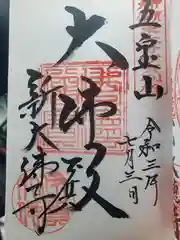 五宝山
令和三年
七月三日
大佛殿
新大佛寺